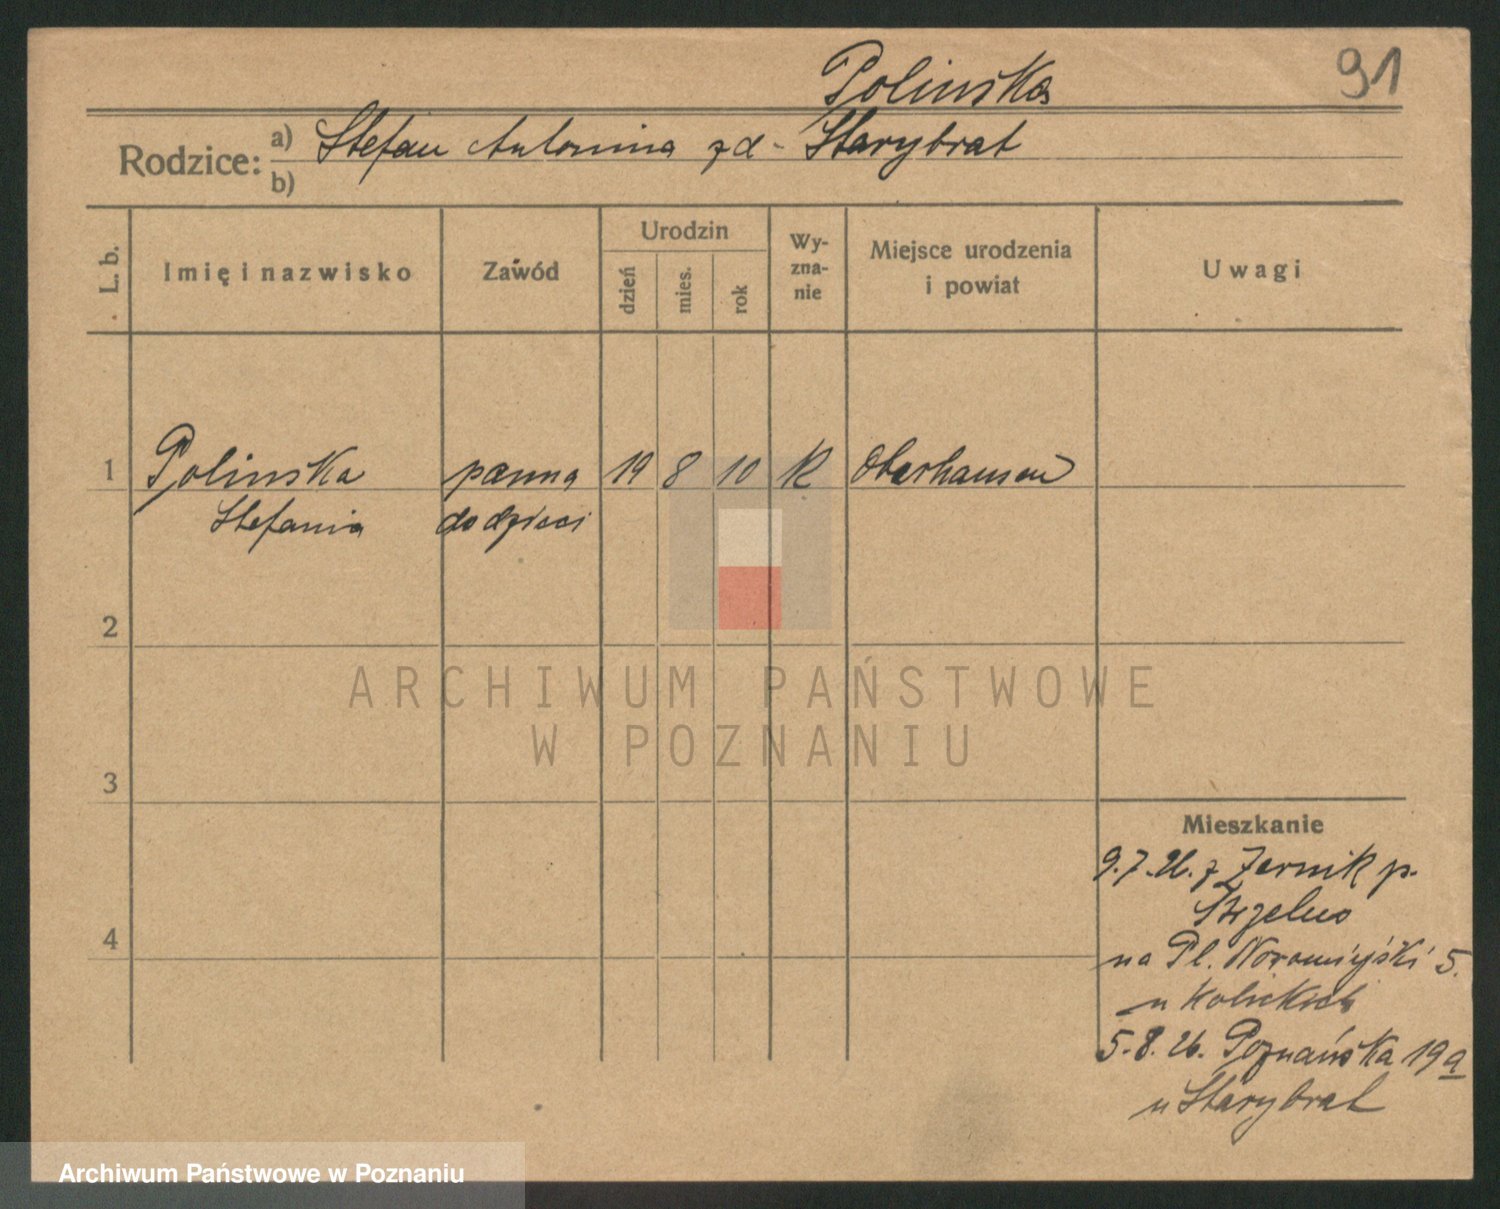 Polinska 91
Rodzice: a) Stefan Antonina z d - Starybrat
b)
L. b. Imię i nazwisko Zawód Urodzin dzień mies. rok Wy-zna-nie Miejsce urodzenia i powiat Uwagi
1 Polinska panna 19 8 10 R Oberhausen
Stefania do dzieci
2
ARCHIWUM PAŃSTWOWE
W POZNANIU
3
Mieszkanie
9.7.26. z Zernik p.
Strzelno
4
na Pl. 5.
u
5.8.26. Poznańska 19a
u Starybrat
Archiwum Państwowe w Poznaniu